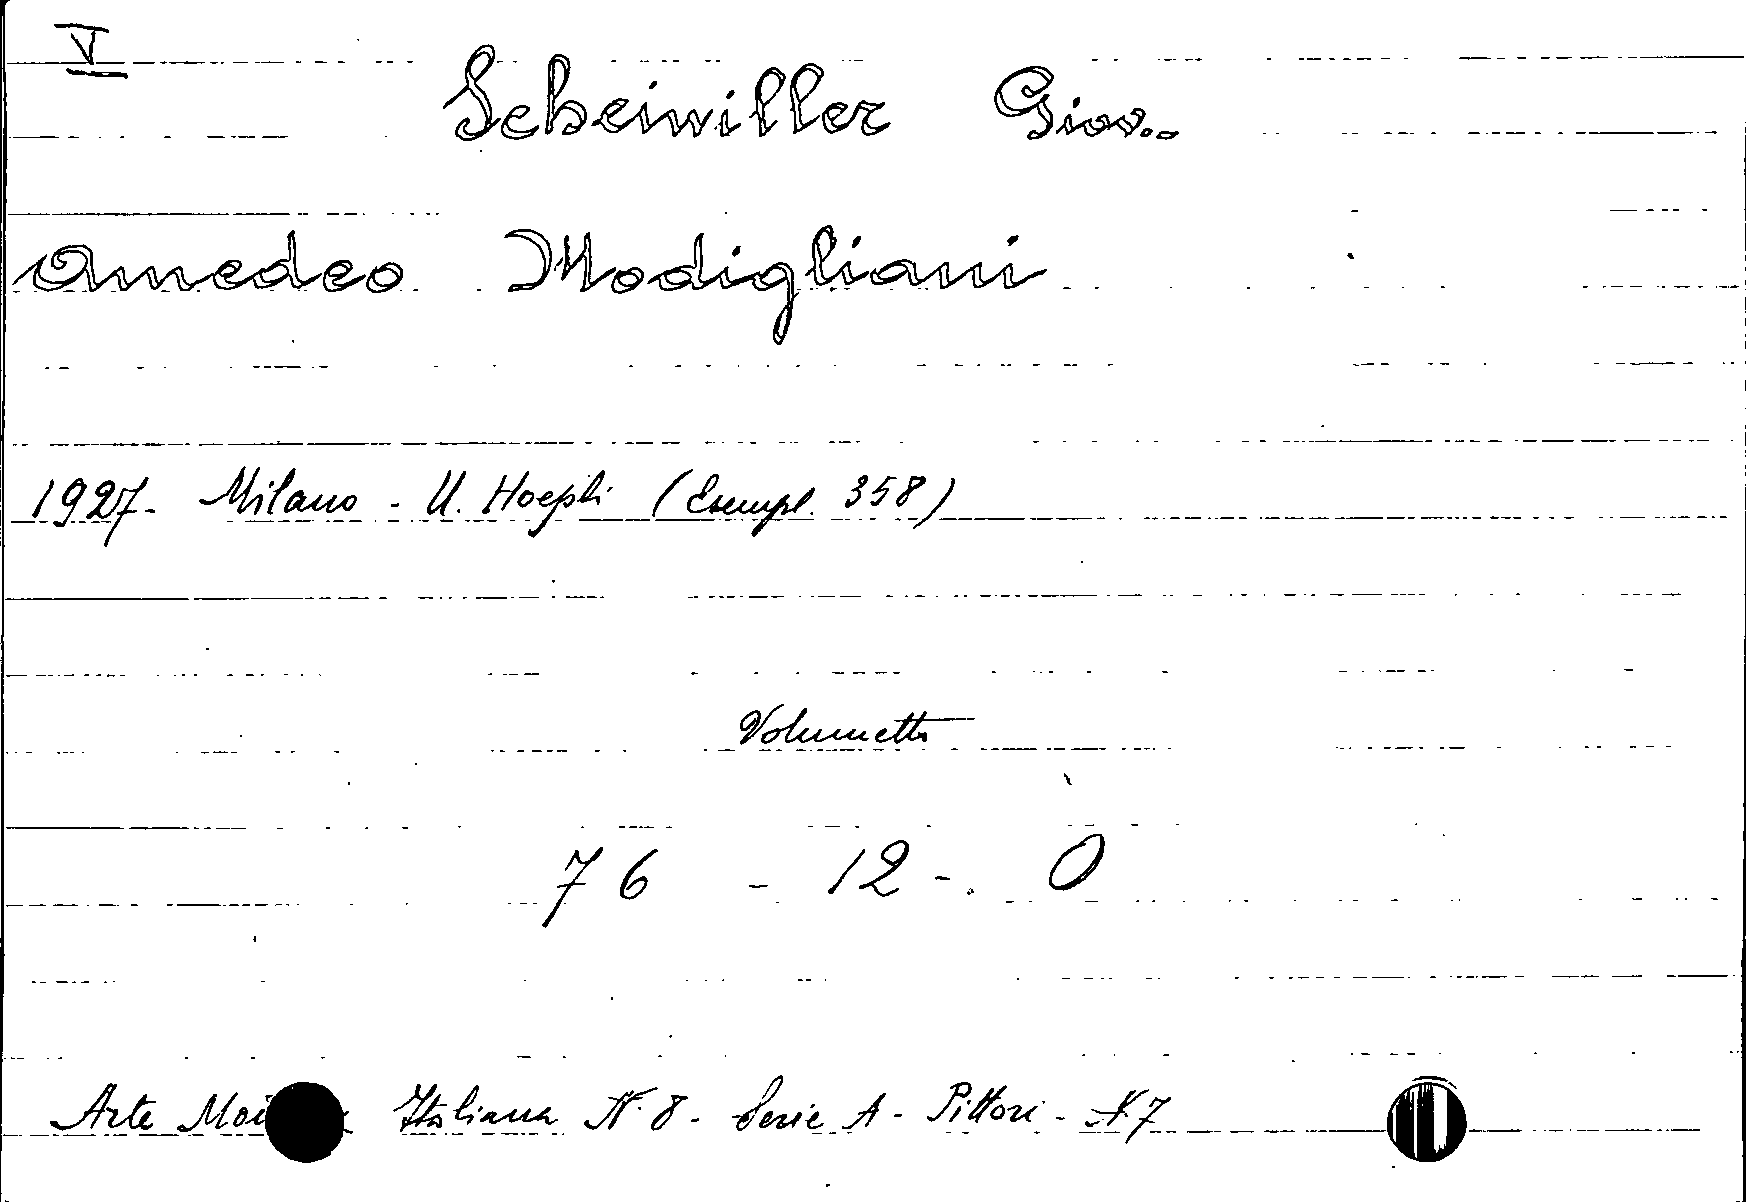 V
Scheiwiller Giov.
Amedeo Modigliani
1927. Milano - U. Hoepli (Esempl. 358)
Volumetto
76 - 12 - 0
Arte Italiana N. 8 - Serie A - Pittori - N. 7